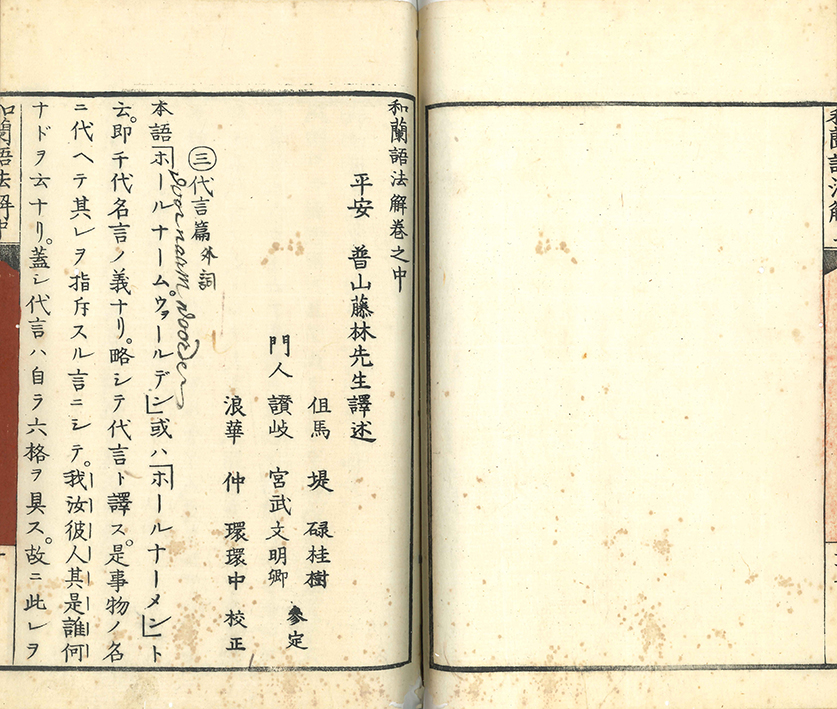 和蘭語法解
和蘭語法解巻之中
平安 普山藤林先生譯述
但馬 堤 碌桂樹
門人 讃岐 宮武文明卿 參定
浪華 仲 環環中 校正
㊂代言篇外詞
voornaam woorden
本語「ホールナーム。ウヲールデン」或ハ「ホールナーメン」ト
云。即チ代名言ノ義ナリ。略シテ代言ト譯ス。是事物ノ名
ニ代ヘテ其レヲ指斥スル言ニシテ。我汝彼人其是誰何
ナドヲ云ナリ。蓋シ代言ハ自ラ六格ヲ具ス。故ニ此レヲ
和蘭語法解中